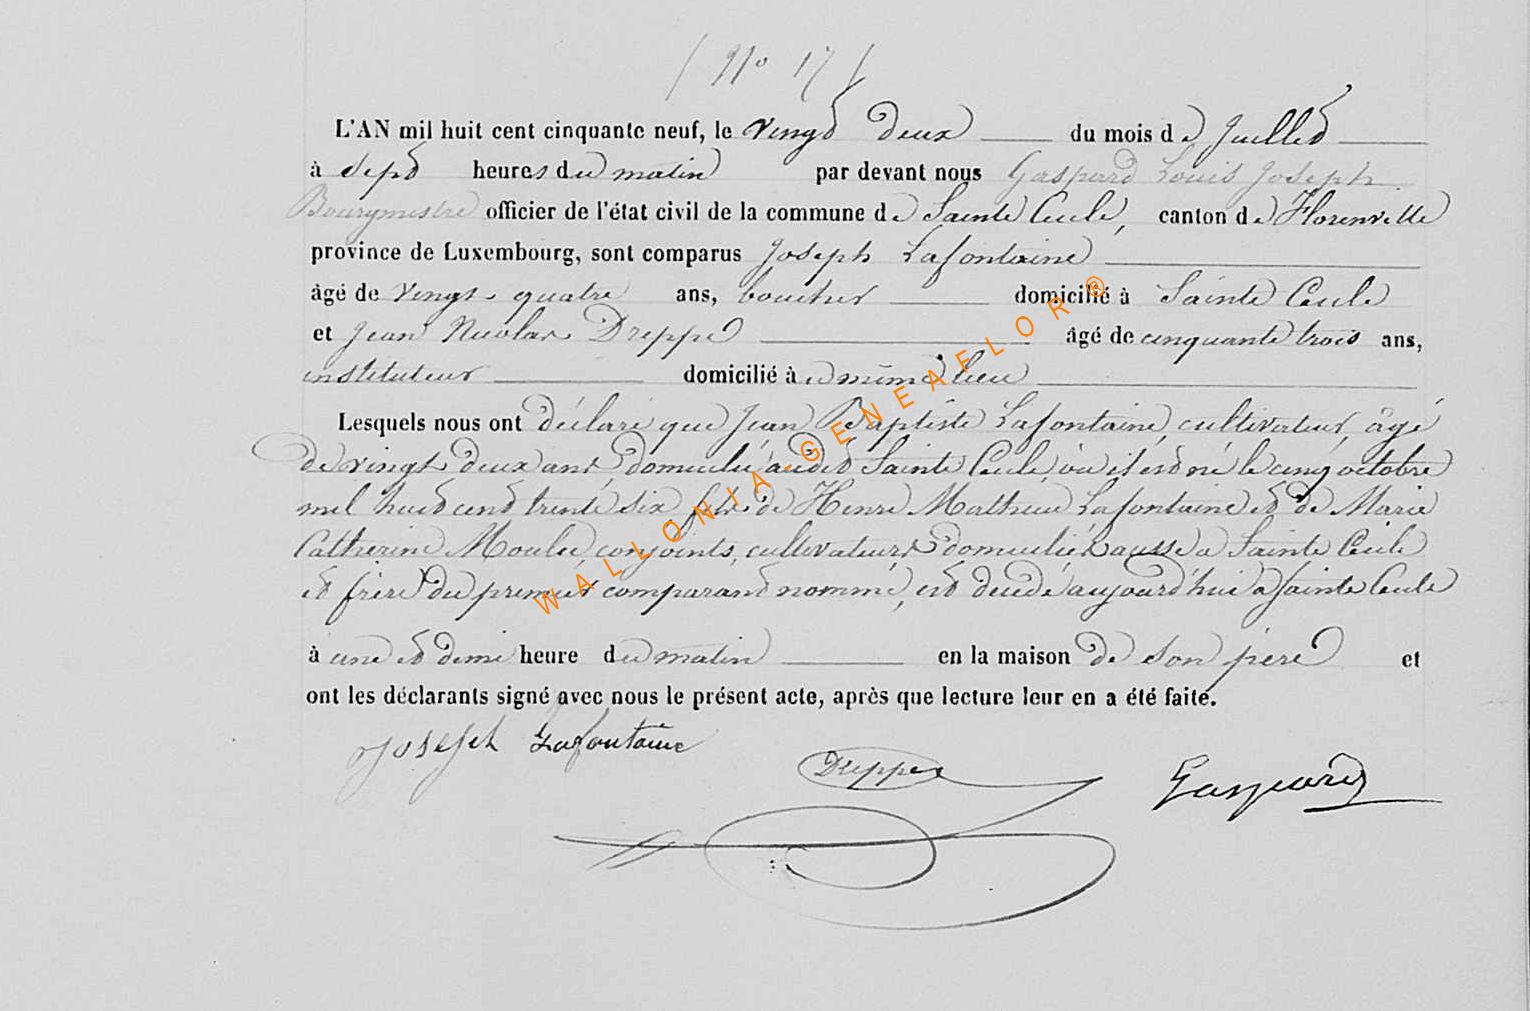 ( No 17 )
L'AN mil huit cent cinquante neuf, le vingt deux du mois de Juillet
à sept heures du matin par devant nous Gaspard Louis Joseph
Bourgmestre officier de l'état civil de la commune de Sainte Cecile, canton de Florenville
province de Luxembourg, sont comparus Joseph Lafontaine
âgé de vingt-quatre ans, boucher domicilié à Sainte Cecile
et Jean Nicolas Dreppe âgé de cinquante trois ans,
instituteur domicilié à u même lieu
Lesquels nous ont déclaré que Jean Baptiste Lafontaine, cultivateur, âgé
de vingt deux ans, domicilié audit Sainte Cecile, où il est né le cinq octobre
mil huit cent trente six, fils de Henri Mathieu Lafontaine et de Marie
Catherine Moulu, conjoints, cultivateurs domiciliés aussi à Sainte Cecile
et frère du premier comparant nommé, est decedé aujourd'hui à Sainte Cecile
à une et demi heure du matin en la maison de son père et
ont les déclarants signé avec nous le présent acte, après que lecture leur en a été faite.
Joseph Lafontaine
Dreppe
Gaspard
WALLONIA GENEAFLOR ®